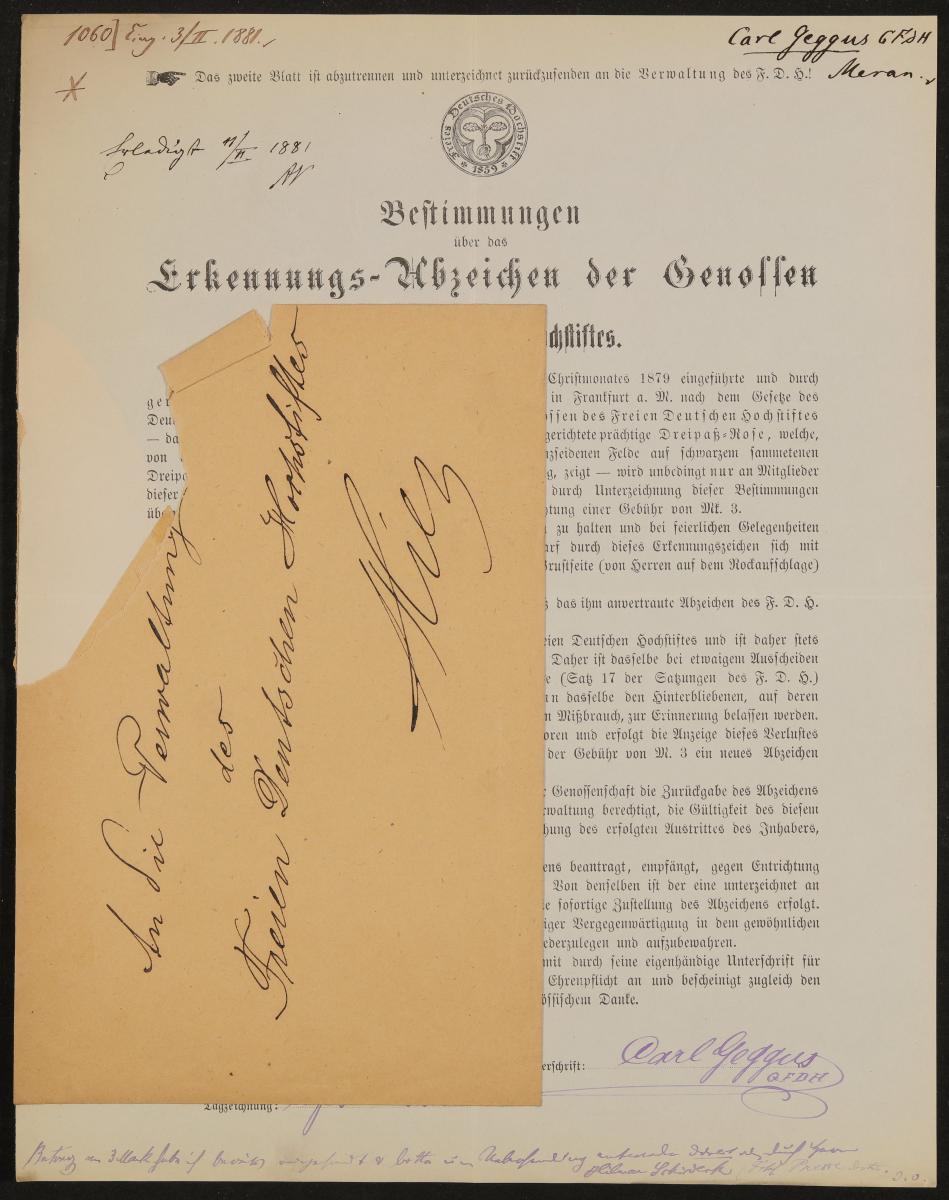 1060] Eing. 3/II. 1881.
Carl Geggus GFDH
Meran.
Das zweite Blatt ist abzutrennen und unterzeichnet zurückzusenden an die Verwaltung des F. D. H.!
Freies Deutsches Hochstift
1859
Erledigt 11/II 1881
Bestimmungen
über das
Erkennungs-Abzeichen der Genossen
chstiftes.
Christmonates 1879 eingeführte und durch
ger in Frankfurt a. M. nach dem Gesetze des
Deu ssen des Freien Deutschen Hochstiftes
— da gerichtete prächtige Dreipaß-Rose, welche,
von nzseidenen Felde auf schwarzem sammetenen
Dreip g, zeigt — wird unbedingt nur an Mitglieder
dieser durch Unterzeichnung dieser Bestimmungen
übe htung einer Gebühr von Mk. 3.
zu halten und bei feierlichen Gelegenheiten
arf durch dieses Erkennungszeichen sich mit
Brustseite (von Herren auf dem Rockaufschlage)
das ihm anvertraute Abzeichen des F. D. H.
eien Deutschen Hochstiftes und ist daher stets
Daher ist dasselbe bei etwaigem Ausscheiden
e (Satz 17 der Satzungen des F. D. H.)
nn dasselbe den Hinterbliebenen, auf deren
n Mißbrauch, zur Erinnerung belassen werden.
oren und erfolgt die Anzeige dieses Verlustes
der Gebühr von M. 3 ein neues Abzeichen
Genossenschaft die Zurückgabe des Abzeichens
rwaltung berechtigt, die Gültigkeit des diesem
hung des erfolgten Austrittes des Inhabers,
ens beantragt, empfängt, gegen Entrichtung
Von denselben ist der eine unterzeichnet an
e sofortige Zustellung des Abzeichens erfolgt.
iger Vergegenwärtigung in dem gewöhnlichen
ederzulegen und aufzubewahren.
mit durch seine eigenhändige Unterschrift für
Ehrenpflicht an und bescheinigt zugleich den
össischem Danke.
An die Verwaltung
des
Freien Deutschen Hochstiftes
erschrift: Carl Geggus
GFDH
Tagzeichnung:
Betrag von 3 Mark habe ich bereits eingesandt & bitte um Uebersendung entweder direct oder durch Herrn